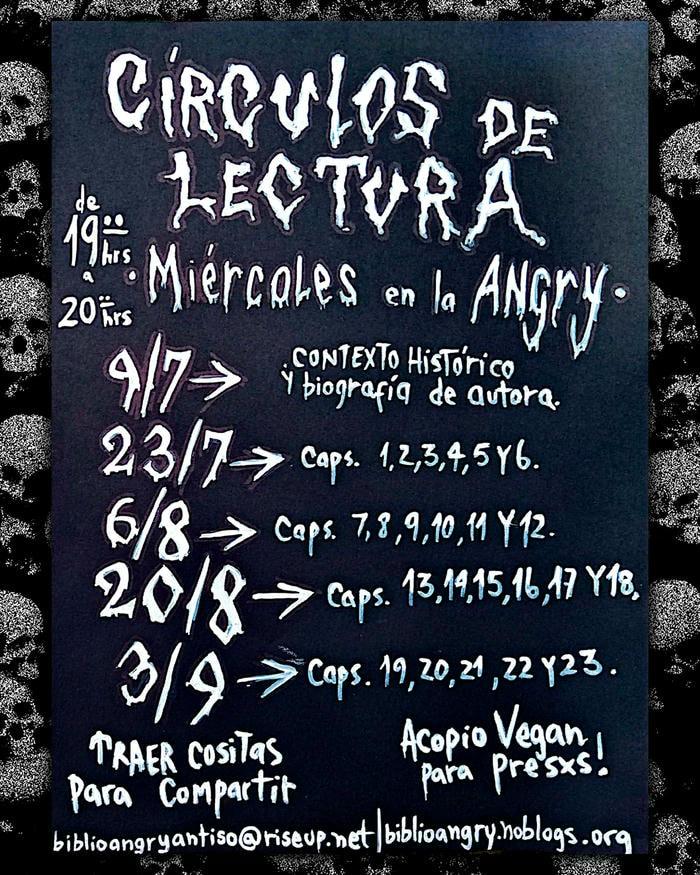 CÍRCULOS DE
LECTURA
de
19:00 hrs
a
20:00 hrs
·Miércoles en la ANGry·
9/7→ .CONTEXTO Histórico
Y biografía de autora.
23/7→ Caps. 1,2,3,4,5 Y 6.
6/8→ Caps. 7,8,9,10,11 Y 12.
20/8→ Caps. 13,14,15,16,17 Y 18.
3/9→ Caps. 19,20,21,22 Y 23.
TRAER cosiTas
Para Compartir
Acopio Vegan
para presxs!
biblioangryantiso@riseup.net|biblioangry.noblogs.org